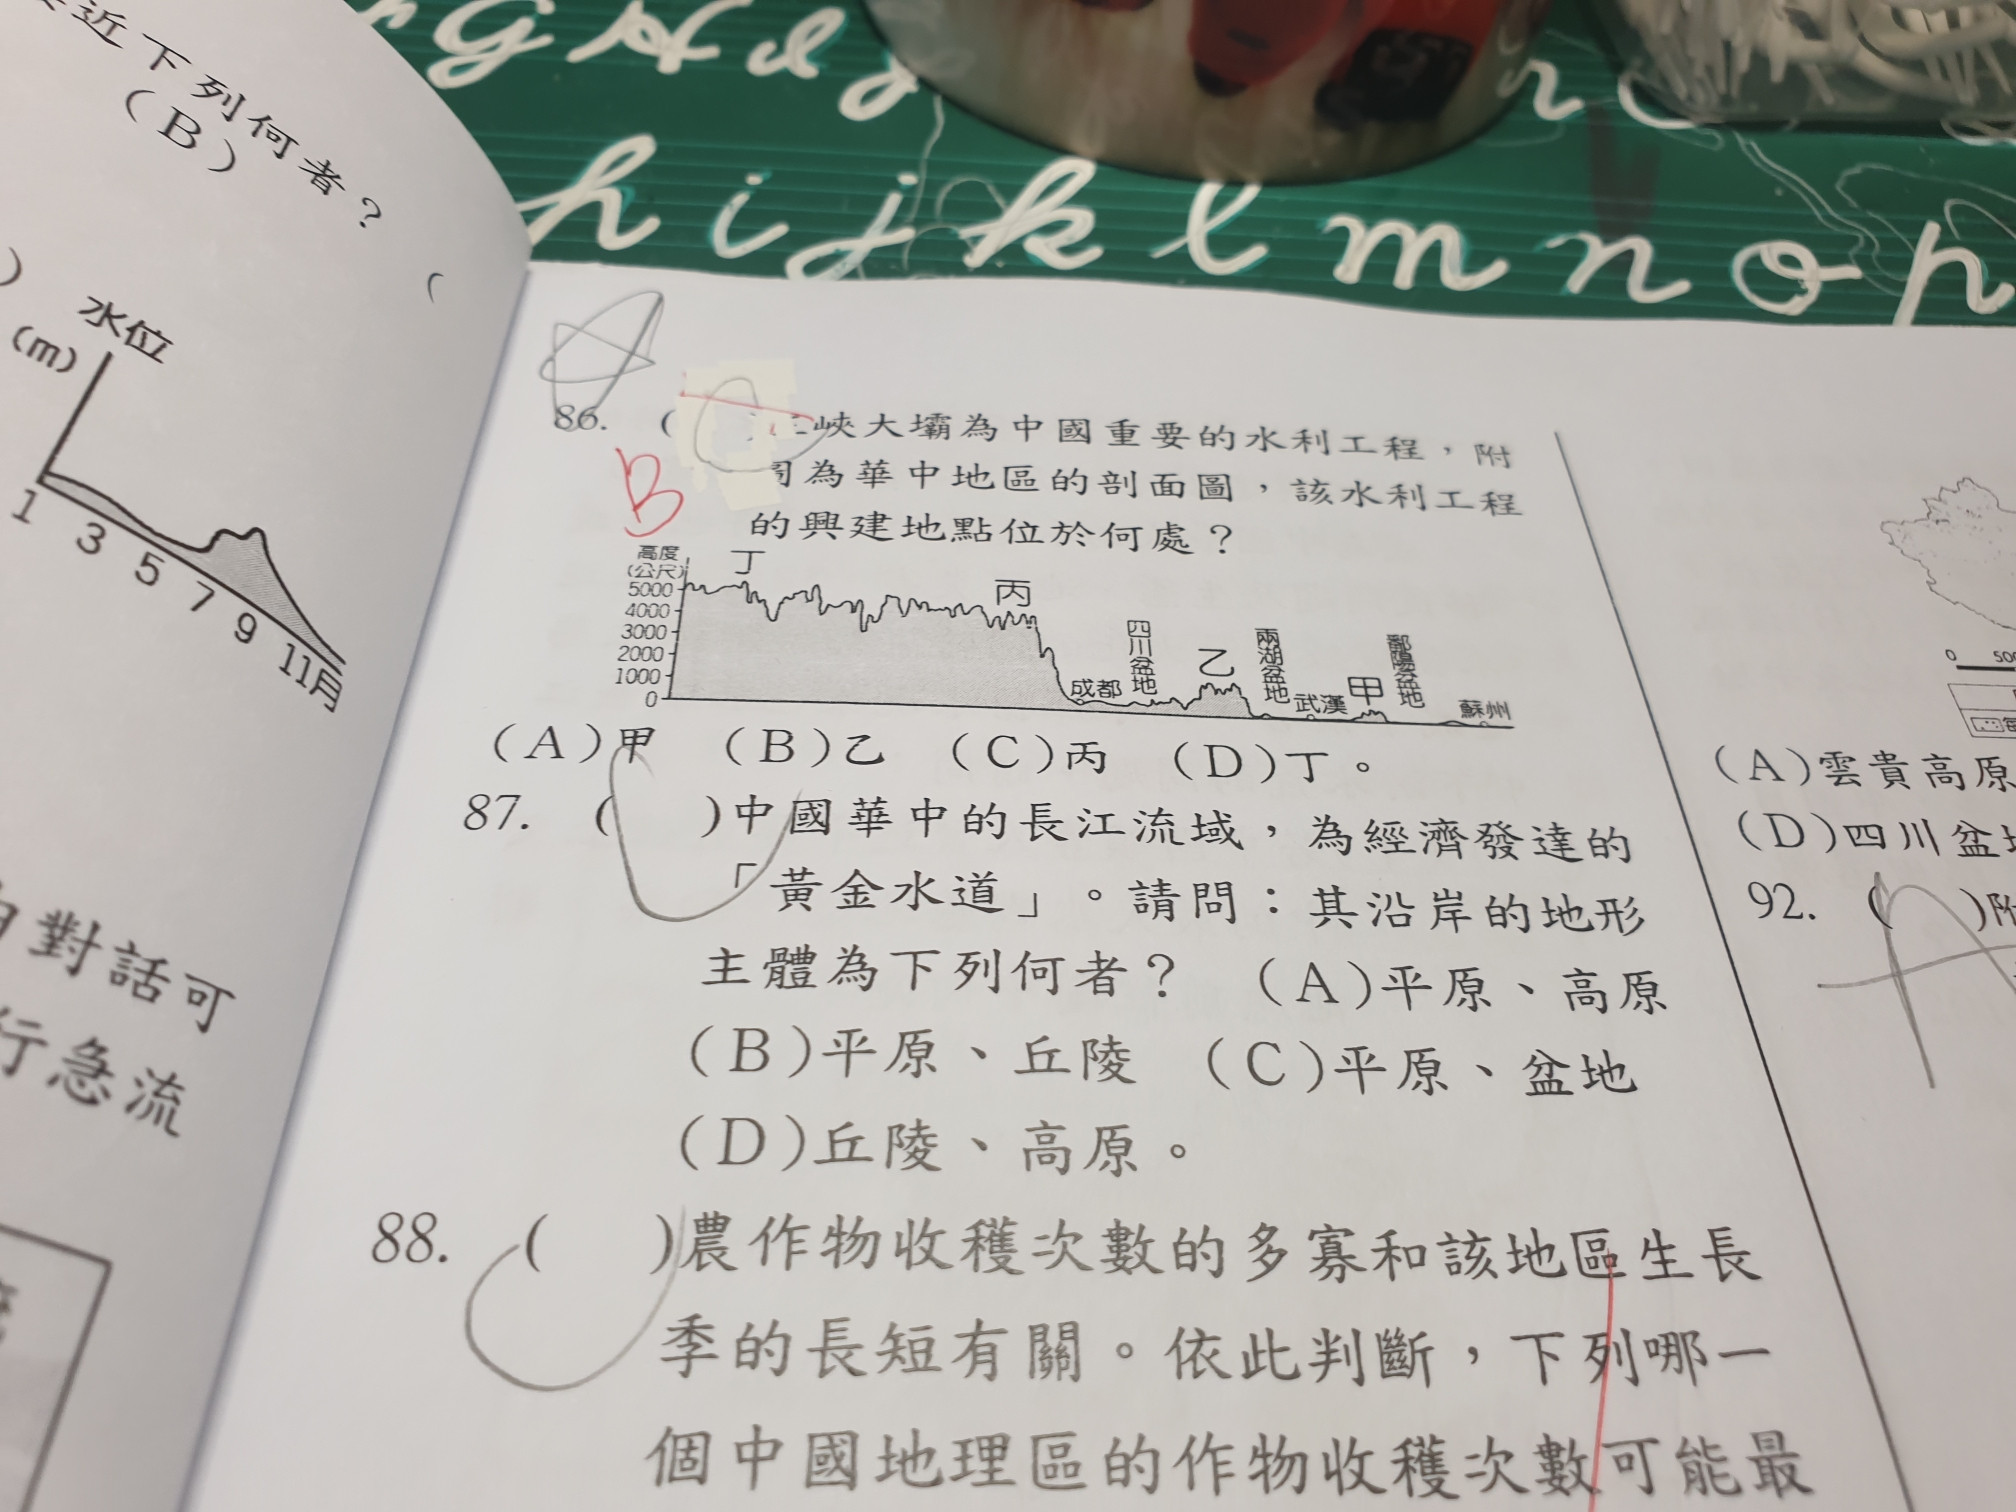 h i j k l m n o p
近下列何者？
(B)
(
水位
(m)
1 3 5 7 9 11月
對話可
行急流
86. (
峽大壩為中國重要的水利工程，附
B
圖為華中地區的剖面圖，該水利工程
的興建地點位於何處？
高度
(公尺)
5000
4000
3000
2000
1000
0
丁
丙
成都
四川盆地
乙
兩湖盆地
武漢
甲
鄱陽盆地
蘇州
(A)甲 (B)乙 (C)丙 (D)丁。
87. ( )中國華中的長江流域，為經濟發達的
「黃金水道」。請問：其沿岸的地形
主體為下列何者？ (A)平原、高原
(B)平原、丘陵 (C)平原、盆地
(D)丘陵、高原。
88. ( )農作物收穫次數的多寡和該地區生長
季的長短有關。依此判斷，下列哪一
個中國地理區的作物收穫次數可能最
0 500
(A)雲貴高原
(D)四川盆地
92. ( )附